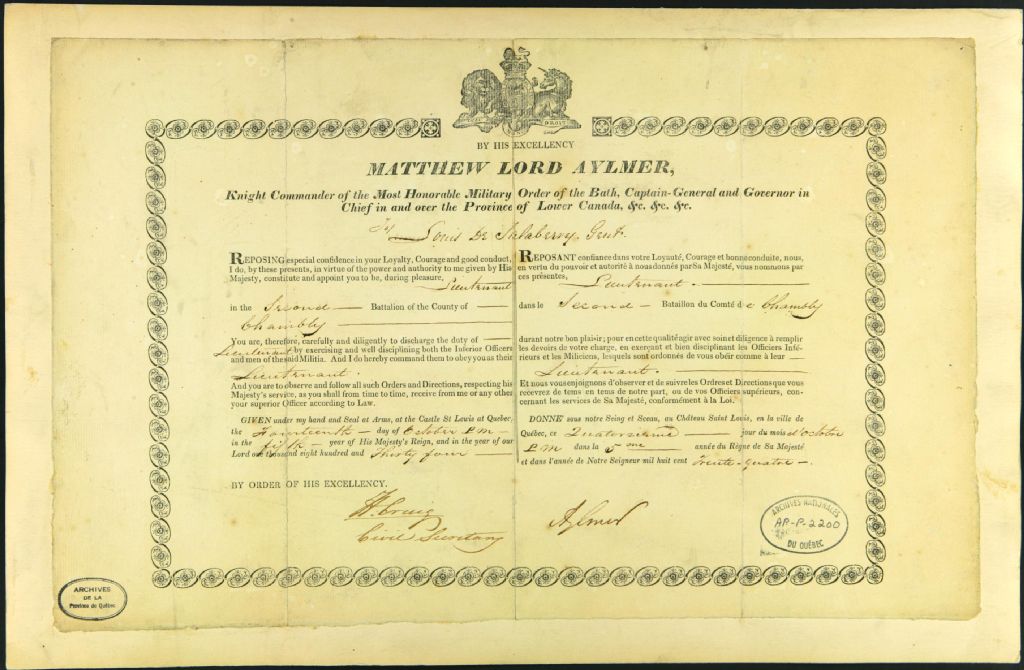 DROIT
BY HIS EXCELLENCY
MATTHEW LORD AYLMER,
Knight Commander of the Most Honorable Military Order of the Bath, Captain-General and Governor in
Chief in and over the Province of Lower Canada, &c. &c. &c.
To Louis De Salaberry Gent.
REPOSING especial confidence in your Loyalty, Courage and good conduct,
I do, by these presents, in virtue of the power and authority to me given by His
Majesty, constitute and appoint you to be, during pleasure,
Lieutenant
in the Second Battalion of the County of
Chambly
You are, therefore, carefully and diligently to discharge the duty of
Lieutenant by exercising and well disciplining both the Inferior Officers
and men of the said Militia. And I do hereby command them to obey you as their
Lieutenant.
And you are to observe and follow all such Orders and Directions, respecting his
Majesty's service, as you shall from time to time, receive from me or any other
your superior Officer according to Law.
GIVEN under my hand and Seal at Arms, at the Castle St Lewis at Quebec,
the Fourteenth day of October
in the fifth year of His Majesty's Reign, and in the year of our
Lord one thousand eight hundred and Thirty four
REPOSANT confiance dans votre Loyauté, Courage et bonne conduite, nous,
en vertu du pouvoir et autorité à nous donnés par Sa Majesté, vous nommons par
ces présentes,
Lieutenant.
dans le Second Bataillon du Comté de Chambly
durant notre bon plaisir; pour en cette qualité agir avec soin et diligence à remplir
les devoirs de votre charge, en exerçant et bien disciplinant les Officiers Infé-
rieurs et les Miliciens, lesquels sont ordonés de vous obéir comme à leur
Lieutenant.
Et nous vous enjoignons d'observer et de suivre les Ordres et Directions que vous
recevrez de tems en tems de notre part, ou de vos Officiers supérieurs, con-
cernant les services de Sa Majesté, conformément à la Loi.
DONNÉ sous notre Seing et Sceau, au Château Saint Louis, en la ville de
Québec, ce Quatorzième jour du mois d'Octobre
dans la 5me année du Règne de Sa Majesté
et dans l'année de Notre Seigneur mil huit cent Trente-quatre.
BY ORDER OF HIS EXCELLENCY.
H Craig
Civil Secretary
Aylmer
ARCHIVES NATIONALES
AP-P-2200
DU QUÉBEC
ARCHIVES
DE LA
Province de Québec